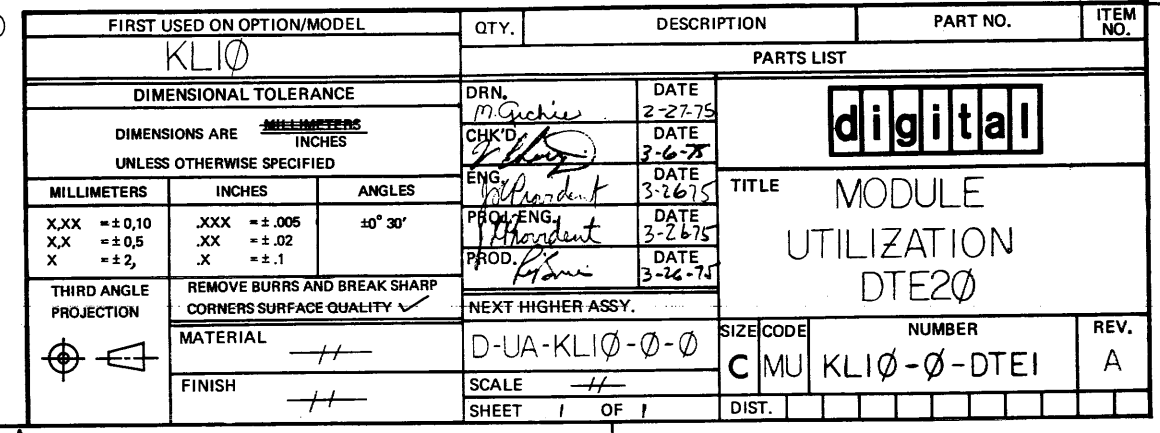 FIRST USED ON OPTION/MODEL
KL1Ø
QTY. DESCRIPTION PART NO. ITEM NO.
PARTS LIST
DIMENSIONAL TOLERANCE
DIMENSIONS ARE MILLIMETERS
INCHES
UNLESS OTHERWISE SPECIFIED
MILLIMETERS INCHES ANGLES
X,XX =±0,10 .XXX =±.005 ±0° 30′
X,X =±0,5 .XX =±.02
X =±2, .X =±.1
THIRD ANGLE PROJECTION
REMOVE BURRS AND BREAK SHARP
CORNERS SURFACE QUALITY
MATERIAL
FINISH
DRN. DATE
2-27-75
CHK'D DATE
3-6-75
ENG. Provident DATE
3-2675
PROJ. ENG. Provident DATE
3-2675
PROD. DATE
3-26-75
NEXT HIGHER ASSY.
D-UA-KL1Ø-Ø-Ø
SCALE
SHEET 1 OF 1
digital
TITLE MODULE
UTILIZATION
DTE2Ø
SIZE CODE NUMBER REV.
C MU KL1Ø-Ø-DTE1 A
DIST.